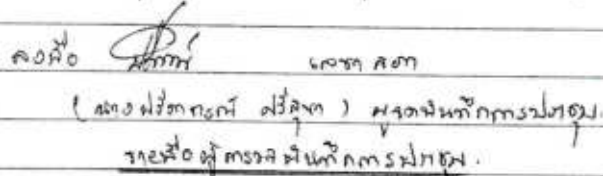 ลงชื่อ เลขา สภา
(นาง ปรีดาภรณ์ ศรีสุขา) ผู้จดบันทึกการประชุม.
รายชื่อผู้ตรวจบันทึกการประชุม.